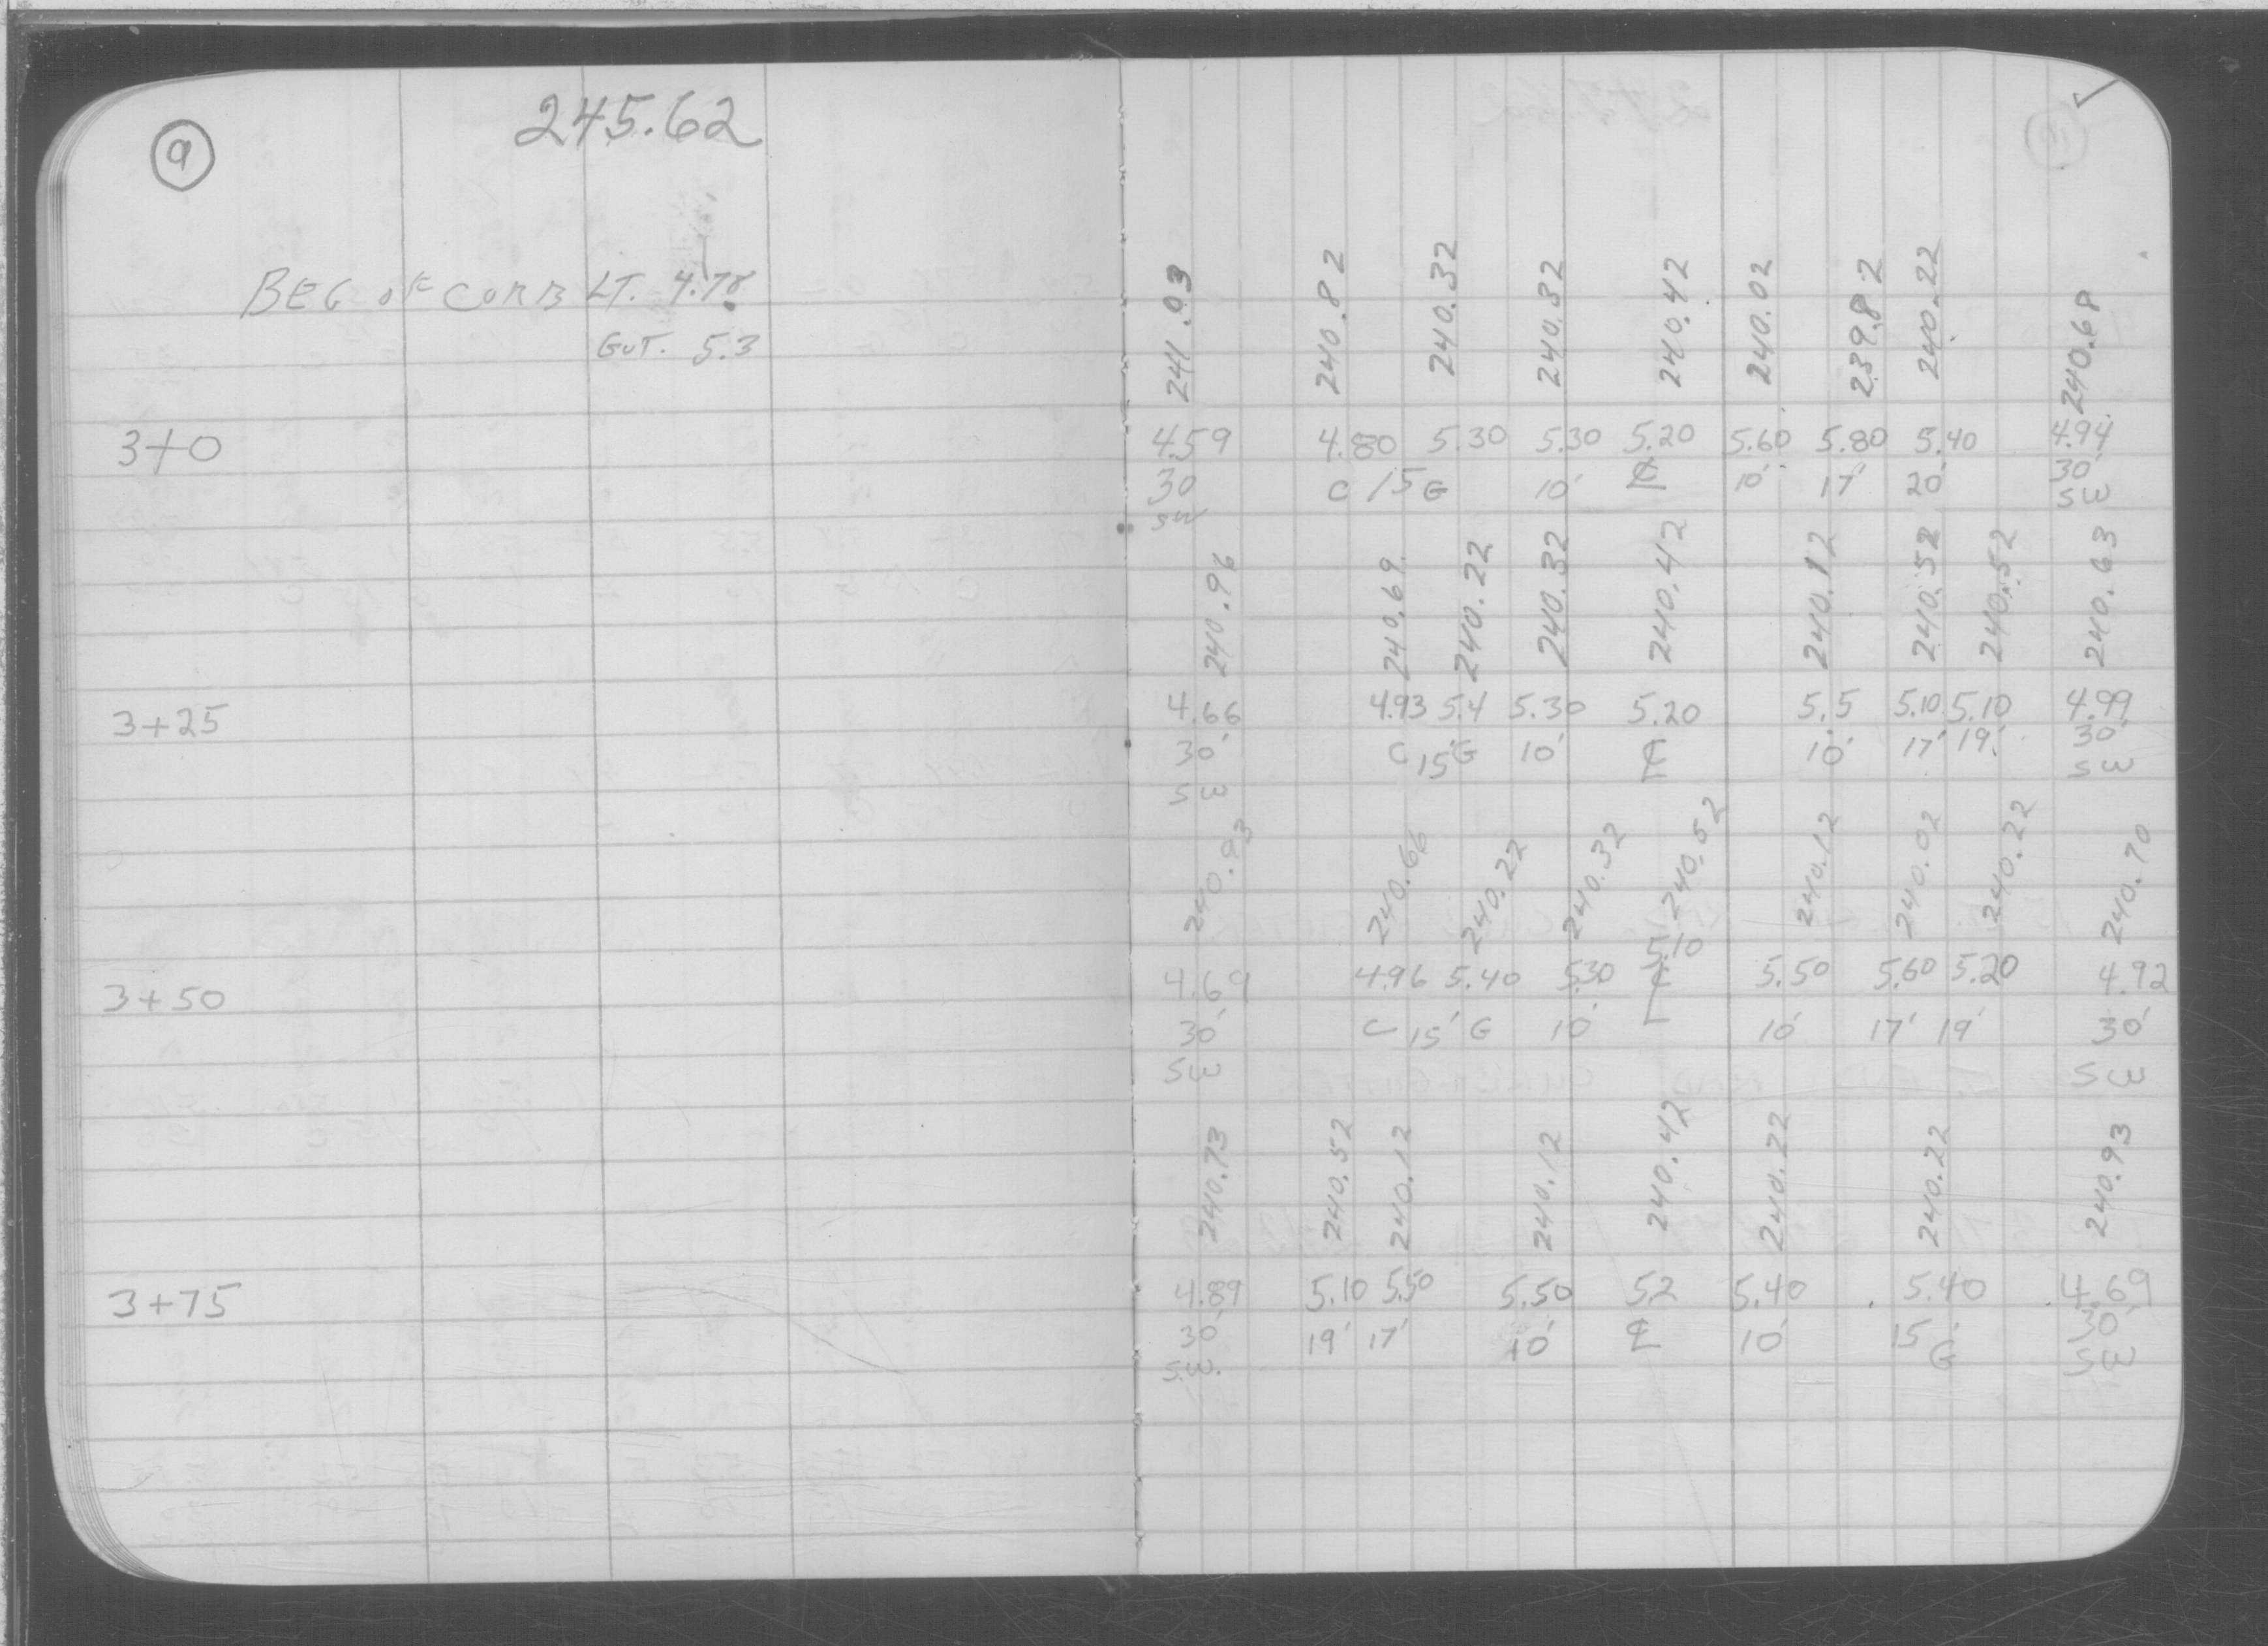 9
245.62
BEG OF CURB LT. 4.78
GUT. 5.3
241.03 240.82 240.32 240.32 240.42 240.02 239.82 240.22 240.68
3+0 4.59 4.80 5.30 5.30 5.20 5.60 5.80 5.40 4.94
30 C 15 G 10' ℄ 10' 17' 20 30'
SW SW
240.96 240.69 240.22 240.32 240.42 240.12 240.52 240.52 240.63
3+25 4.66 4.93 5.4 5.30 5.20 5.5 5.10 5.10 4.99
30' C 15' G 10' ℄ 10' 17' 19' 30'
SW SW
240.93 240.66 240.22 240.32 240.52 240.12 240.02 240.22 240.70
5.10
3+50 4.69 4.96 5.40 5.30 ℄ 5.50 5.60 5.20 4.92
30' C 15' G 10' 10' 17' 19' 30'
SW SW
240.73 240.52 240.12 240.12 240.42 240.22 240.22 240.93
3+75 4.89 5.10 5.50 5.50 5.2 5.40 5.40 4.69
30' 19' 17' 10' ℄ 10' 15 G 30'
S.W. SW